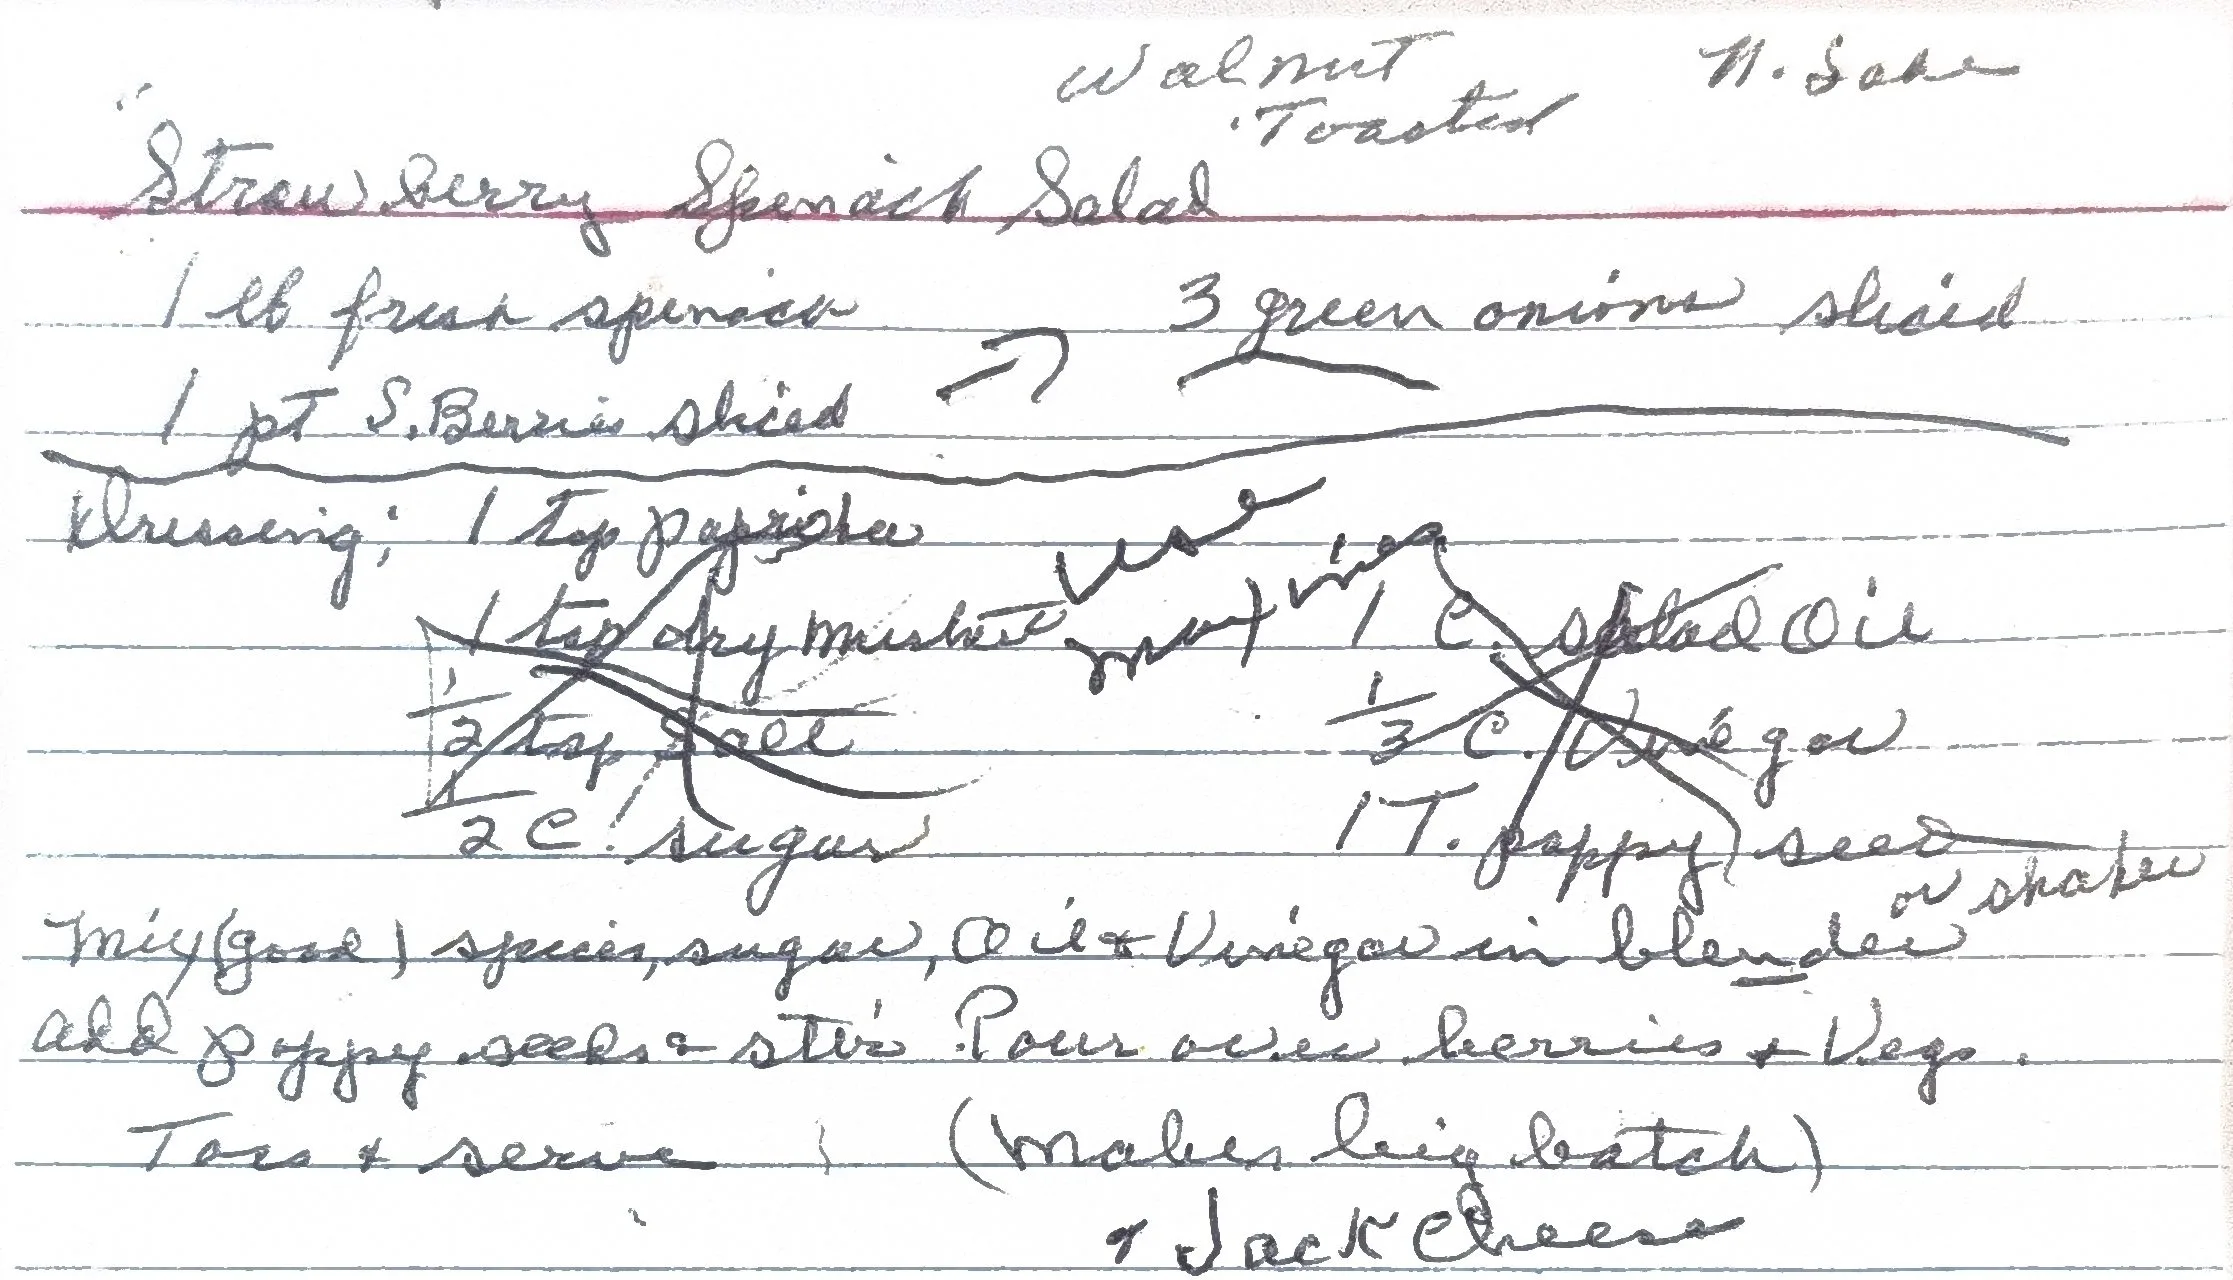 Walnut
Toasted
Strawberry Spenach Salad
1 lb fresh spenach 3 green onions sliced
1 pt S. Berries sliced
Dressing; 1 tsp paprika
use
next
1 tsp dry mustard 1 C. salad Oil
1/2 tsp Salt 1/3 C. Vinegar
1/2 C. sugar 1 T. poppy seed
or shaker
Mix (good) spices, sugar, Oil & Vinegar in blender
add poppy seeds & stir Pour over berries & Vegs.
Toss & serve (Makes big batch)
& Jack Cheese